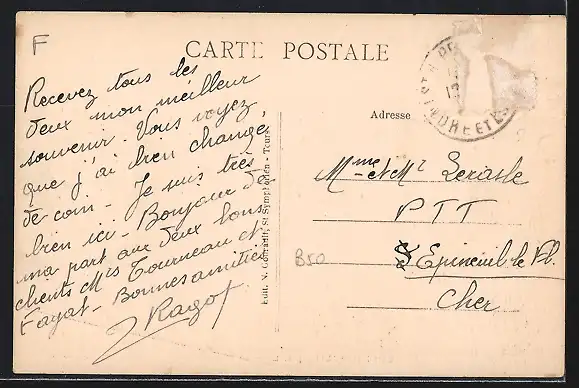 F
CARTE POSTALE
Recevez tous les
deux mon meilleur
souvenir. Vous voyez
que j'ai bien changé
de coin - Je suis très
bien ici - Bonjour de
ma part aux deux bons
clients Mrs Tourneau et
Fayat - Bonnes amitiés
Ragot
Edit. St Symphorien - Tours
Adresse
INDRE ET
Mme et Mr
PTT
B50
St Epineuil le Fl.
Cher